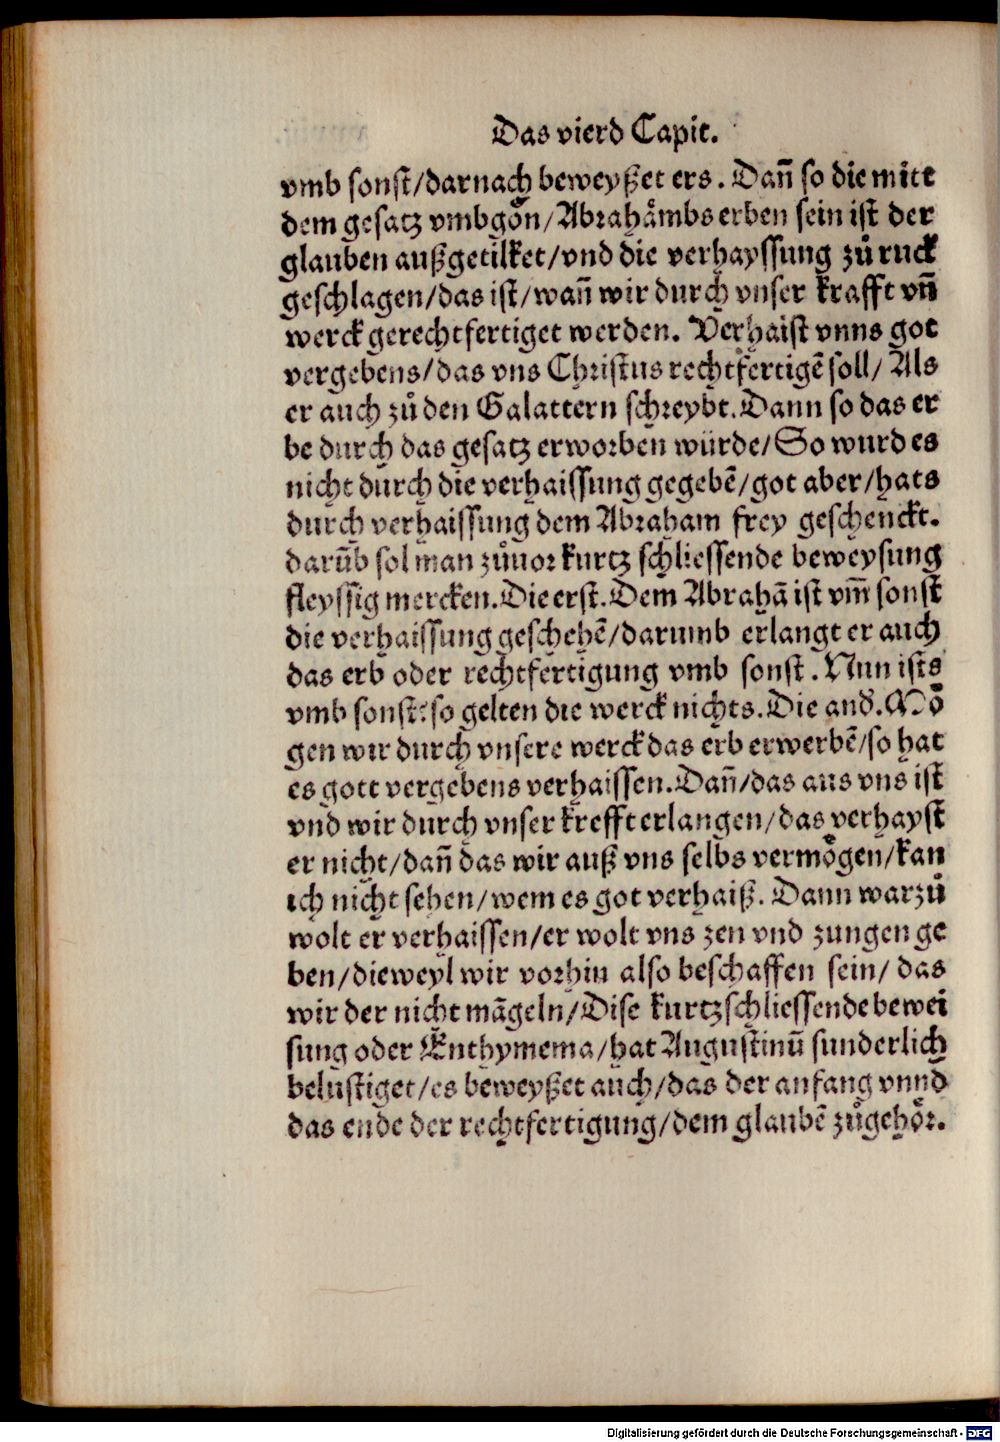 Das vierd Capit.
vmb sonst/darnach beweyßet ers. Dañ so die mitt
dem gesatz vmbgoͤn/Abrahaͤmbs erben sein ist der
glauben außgetilket/vnd die verhayssung zuͦ ruck
geschlagen/das ist/wañ wir durch vnser krafft vñ
werck gerechtfertiget werden. Verhaist vnns got
vergebens/das vns Christus rechtfertigē soll/ Als
er auch zuͦ den Galattern schreybt. Dann so das er
be durch das gesatz erworben würde/So wurd es
nicht durch die verhaissung gegebē/got aber/hats
durch verhaissung dem Abraham frey geschenckt.
darūb sol man zuͦuor kurtz schliessende beweysung
fleyssig mercken. Die erst. Dem Abrahā ist vm̄ sonst
die verhaissung geschehē/darumb erlangt er auch
das erb oder rechtfertigung vmb sonst. Nun ists
vmb sonst: so gelten die werck nichts. Die and̕. Moͤ
gen wir durch vnsere werck das erb erwerbē/so hat
es gott vergebens verhaissen. Dañ/das aus vns ist
vnd wir durch vnser krefft erlangen/das verhayst
er nicht/dañ das wir auß vns selbs vermoͤgen/kan
ich nicht sehen/wem es got verhaiß. Dann warzuͦ
wolt er verhaissen/er wolt vns zen vnd zungen ge
ben/dieweyl wir vorhin also beschaffen sein/ das
wir der nicht māgeln/Dise kurtzschliessende bewei
sung oder Enthymema/hat Augustinū sunderlich
belustiget/es beweyßet auch/das der anfang vnnd
das ende der rechtfertigung/dem glaubē zuͦgehoͤr.
Digitalisierung gefördert durch die Deutsche Forschungsgemeinschaft - DFG